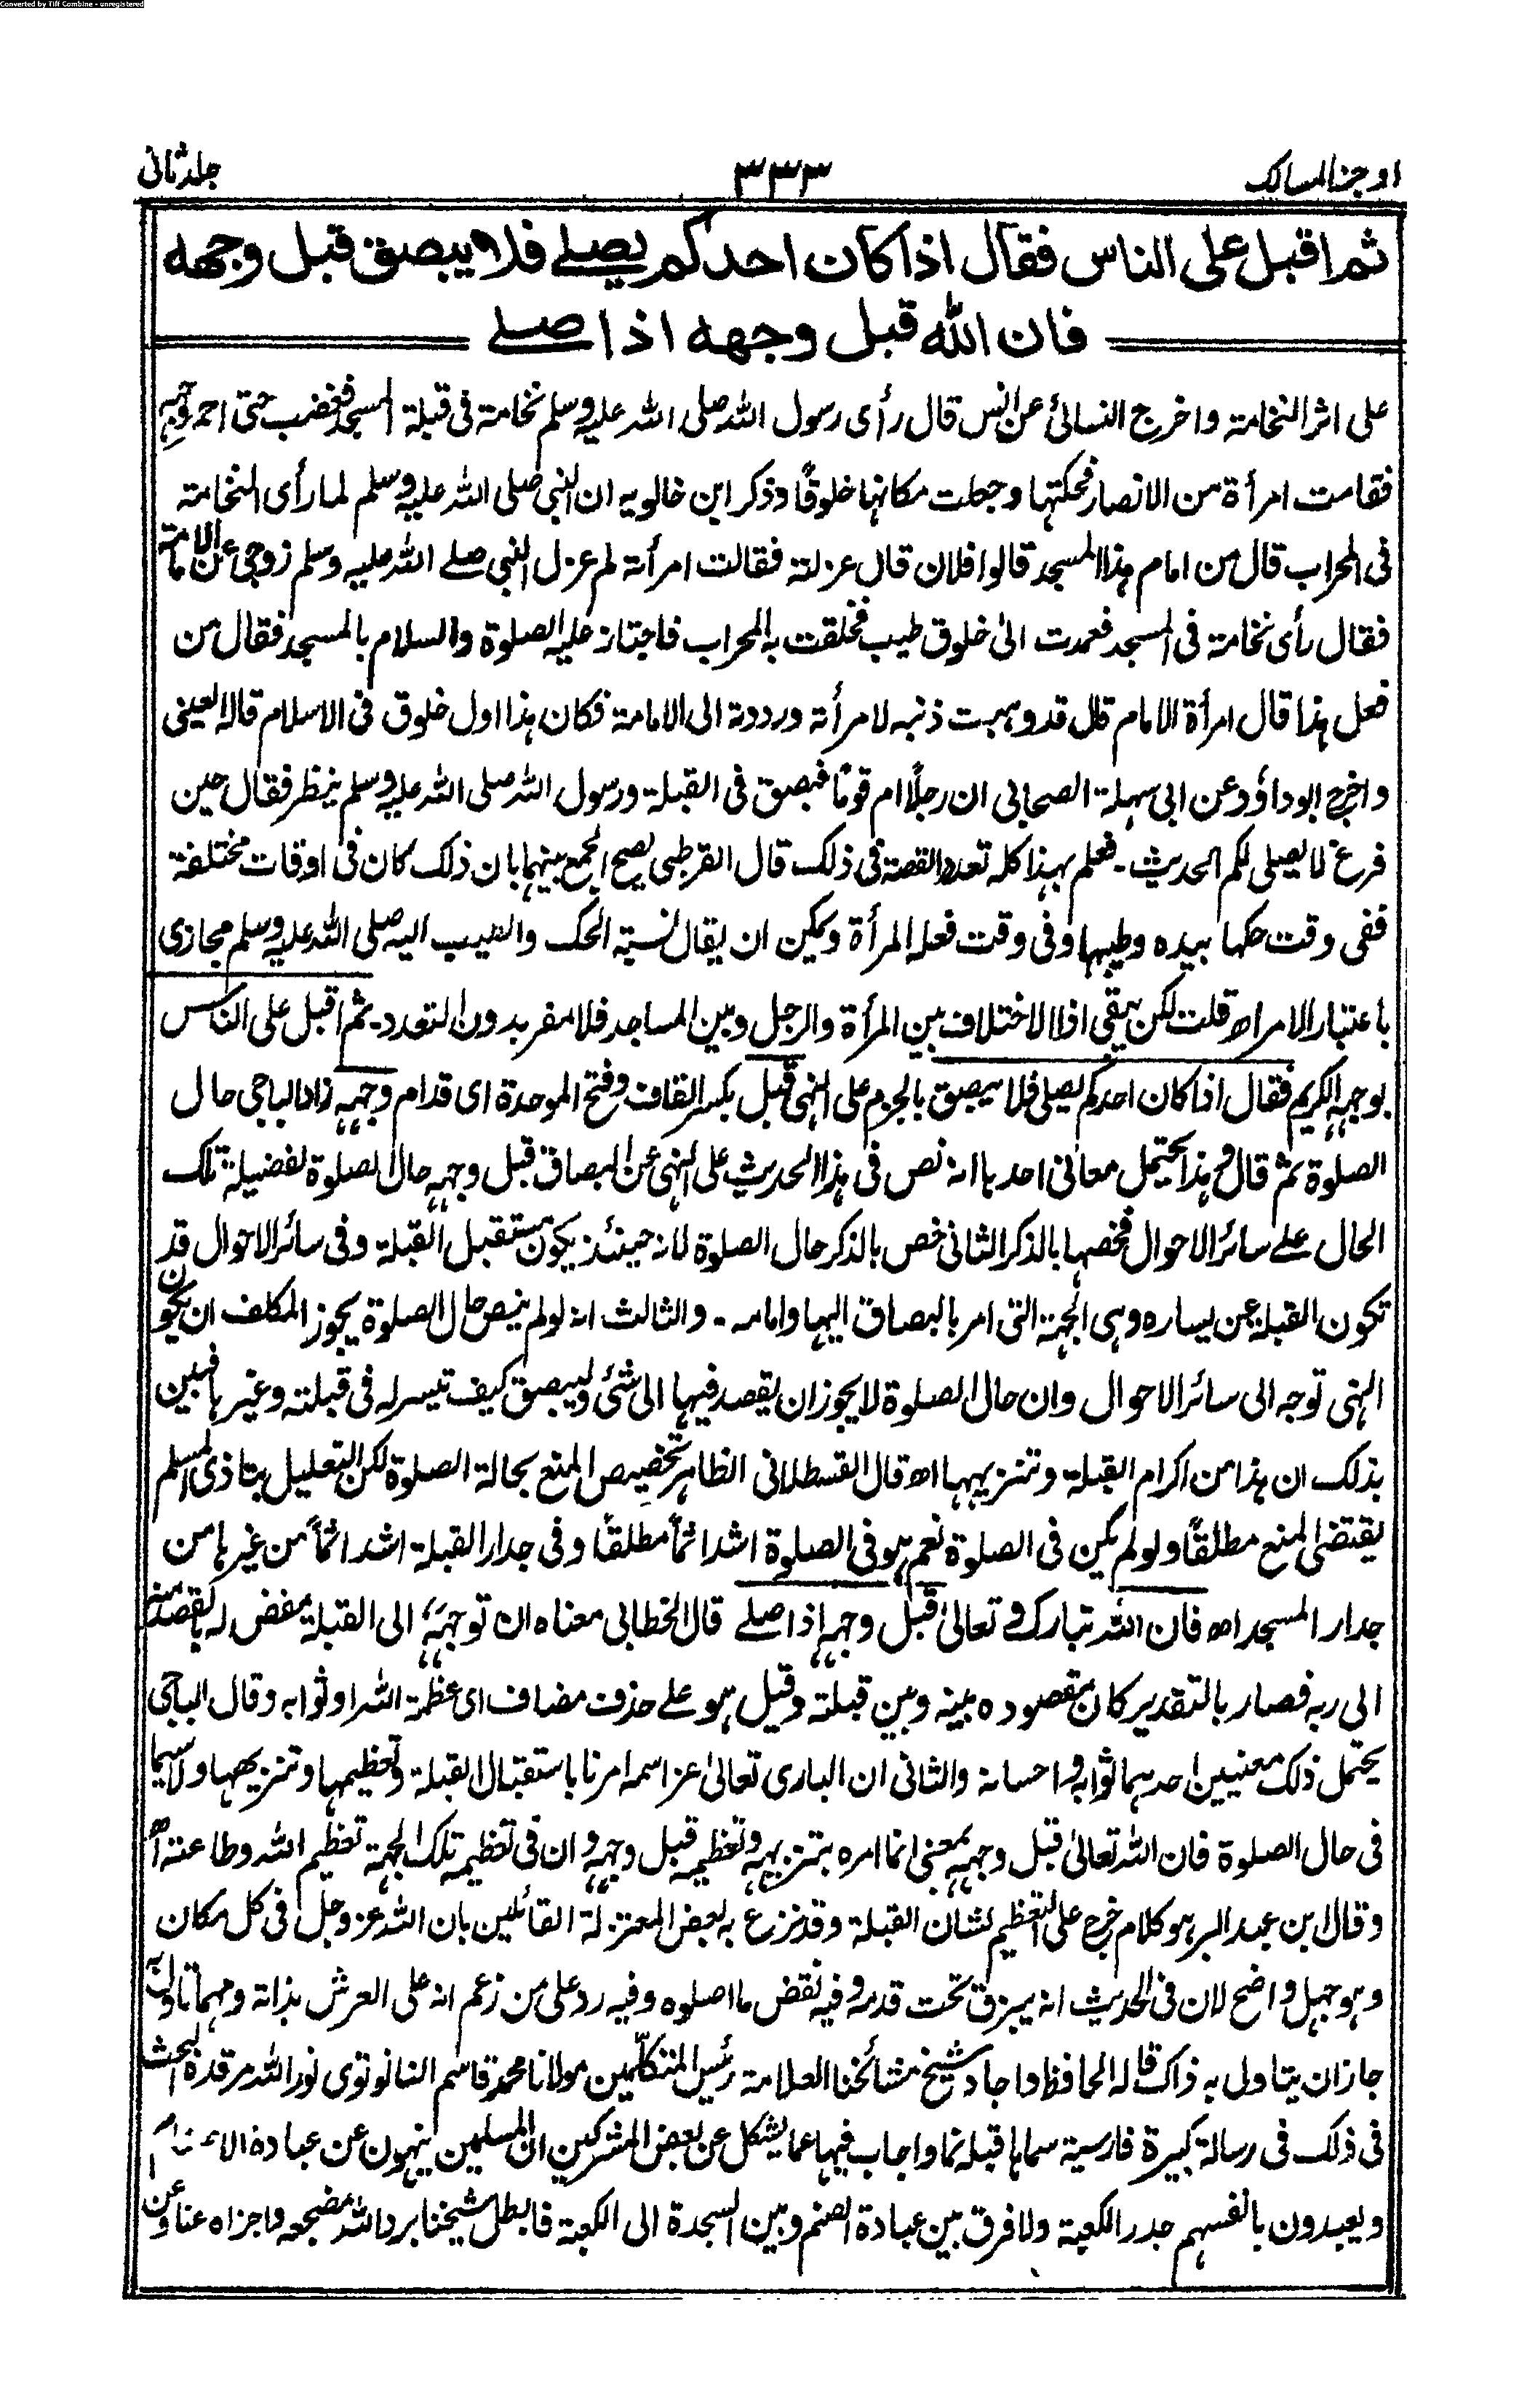 Converted by Tiff Combine - unregistered
اوجز المسالک ۳۳۳ جلد ثانی
ثم اقبل على الناس فقال اذا كان احدكم يصلے فلا يبصق قبل وجهه
فان الله قبل وجهه اذا صلے
على اثر النخامة واخرج النسائى عن انس قال رأى رسول الله صلى الله عليه وسلم نخامة فى قبلة المسجد فغضب حتى احمر وجهه
فقامت امرأة من الانصار فحكتها وجعلت مكانها خلوقًا وذكر ابن خالويه ان النبى صلى الله عليه وسلم لما رأى النخامة
فى المحراب قال من امام هذا المسجد قالوا فلان قال عزلته فقالت امرأته لم عزل النبى صلے الله عليه وسلم زوجى عن الامامة
فقال رأى نخامة فى المسجد فعمدت الى خلوق طيب فخلقت به المحراب فاجتاز عليه الصلوة والسلام بالمسجد فقال من
فعل هذا قال امرأة الامام قال قد وهبت ذنبه لامرأته ورددته الى الامامة فكان هذا اول خلوق فى الاسلام قاله العينى
واخرج ابو داؤد عن ابى سهلة الصحابى ان رجلًا ام قومًا فبصق فى القبلة ورسول الله صلى الله عليه وسلم ينظر فقال حين
فرغ لا يصلى لكم الحديث - فعلم بهذا كله تعدد القصة فى ذلك قال القرطبى يصح الجمع بينهما بان ذلك كان فى اوقات مختلفة
ففى وقت حكها بيده وطيبها وفى وقت فعله المرأة ويمكن ان يقال نسبة الحك والطيب اليه صلى الله عليه وسلم مجازى
باعتبار الامر اه قلت لكن يبقى اذا الاختلاف بين المرأة والرجل وبين المساجد فلا مفر بدون التعدد - ثم اقبل على الناس
بوجهه الكريم فقال اذا كان احدكم يصلى فلا يبصق بالجزم على النهى قبل بكسر القاف وفتح الموحدة اى قدام وجهه زاد الباجى حال
الصلوة ثم قال وهذا يحتمل معانى احدها انه نص فى هذا الحديث على النهى عن البصاق قبل وجهه حال الصلوة لفضيلة تلك
الحال علے سائر الاحوال فخصها بالذكر الثانى خص بالذكر حال الصلوة لانه حينئذ يكون مستقبل القبلة وفى سائر الاحوال قد
تكون القبلة عن يساره وهى الجهة التى امر بالبصاق اليها وامامه - والثالث انه لو لم ينص حال الصلوة يجوز المكلف ان يكون
النهى توجه الى سائر الاحوال وان حال الصلوة لا يجوز ان يقصد فيها الى شئ وليبصق كيف تيسر له فى قبلته وغيرها فبين
بذلك ان هذا من اكرام القبلة وتنزيهها اه قال القسطلانى الظاهر تخصيص المنع بحالة الصلوة لكن التعليل بتاذى المسلم
يقتضى المنع مطلقًا ولو لم يكن فى الصلوة نعم هو فى الصلوة اشد اثمًا مطلقًا وفى جدار القبلة اشد اثمًا من غيرها من
جدار المسجد اه فان الله تبارك و تعالىٰ قبل وجهه اذا صلے قال الخطابى معناه ان توجهه الى القبلة مفض له بالقصد منه
الى ربه فصار بالتقدير كان مقصوده بينه وبين قبلته وقيل هو علے حذف مضاف اى عظمة الله او ثوابه وقال الباجى
يحتمل ذلك معنيين احدهما ثوابه و احسانه والثانى ان البارى تعالىٰ عز اسمه امرنا باستقبال القبلة وتعظيمها وتنزيهها ولا سيما
فى حال الصلوة فان الله تعالىٰ قبل وجهه بمعنى انما امره بتنزيهه وتعظيمه قبل وجهه و ان فى تعظيمه تلك الجهة تعظيم الله وطاعته اه
وقال ابن عبد البر هو كلام خرج على التعظيم لشان القبلة وقد نزع به بعض المعتزلة القائلين بان الله عز وجل فى كل مكان
وهو جهل واضح لان فى الحديث انه يبزق تحت قدمه وفيه نقض ما اصلوه وفيه رد على من زعم انه على العرش بذاته ومهما تاول به
جاز ان يتاول به ذاك قاله الحافظ واجاد شيخ مشائخنا العلامة رئيس المتكلمين مولانا محمد قاسم النانوتوى نور الله مرقده البحث
فى ذلك فى رسالة كبيرة فارسية سماها قبله نما واجاب فيها عما يشكل عن بعض المشركين ان المسلمين ينهون عن عبادة الاصنام
ويعبدون بانفسهم جدر الكعبة ولا فرق بين عبادة الصنم وبين السجدة الى الكعبة فابطل شيخنا برد الله مضجعه واجزاه عنا وعن